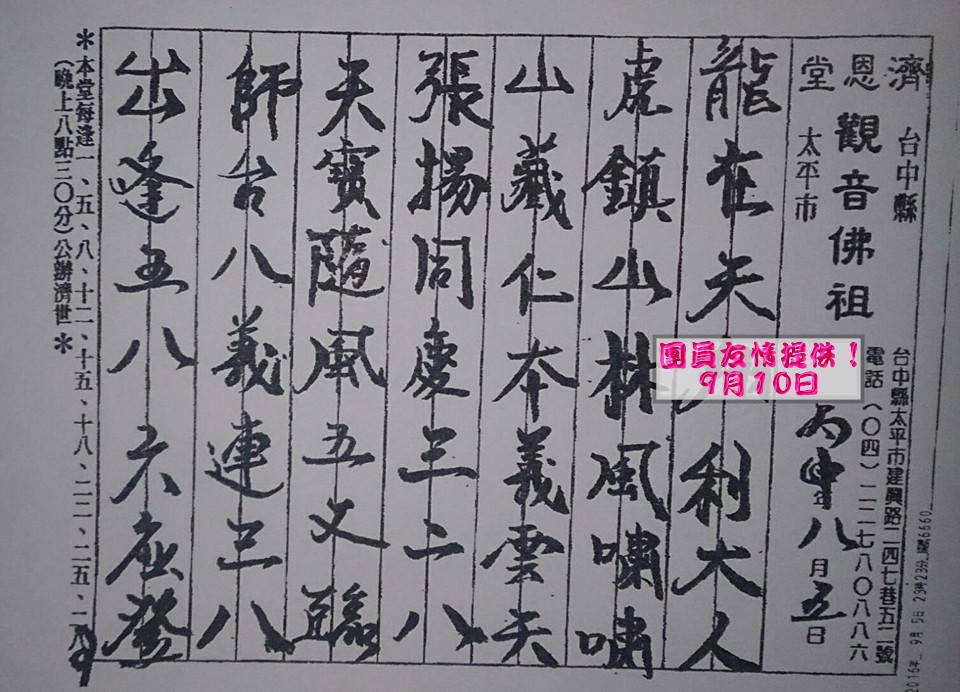 濟恩堂
台中縣
太平市
觀音佛祖
台中縣太平市建興路二四七巷五二號
電話(〇四)二二七八〇八八六
丙申年八月五日
龍在天 利大人
虎鎮山林風嘯嘯
山藏仁本義雲天
張揚同慶三二八
天寶隨風五文臨
師台八義連三八
出逢五八六應登
*本堂每逢一、五、八、十二、十五、十八、二二、二五、二八、
(晚上八點三〇分)公辦濟世*
團員友情提供!
9月10日
2016年 9月 5日 23時23分
6660